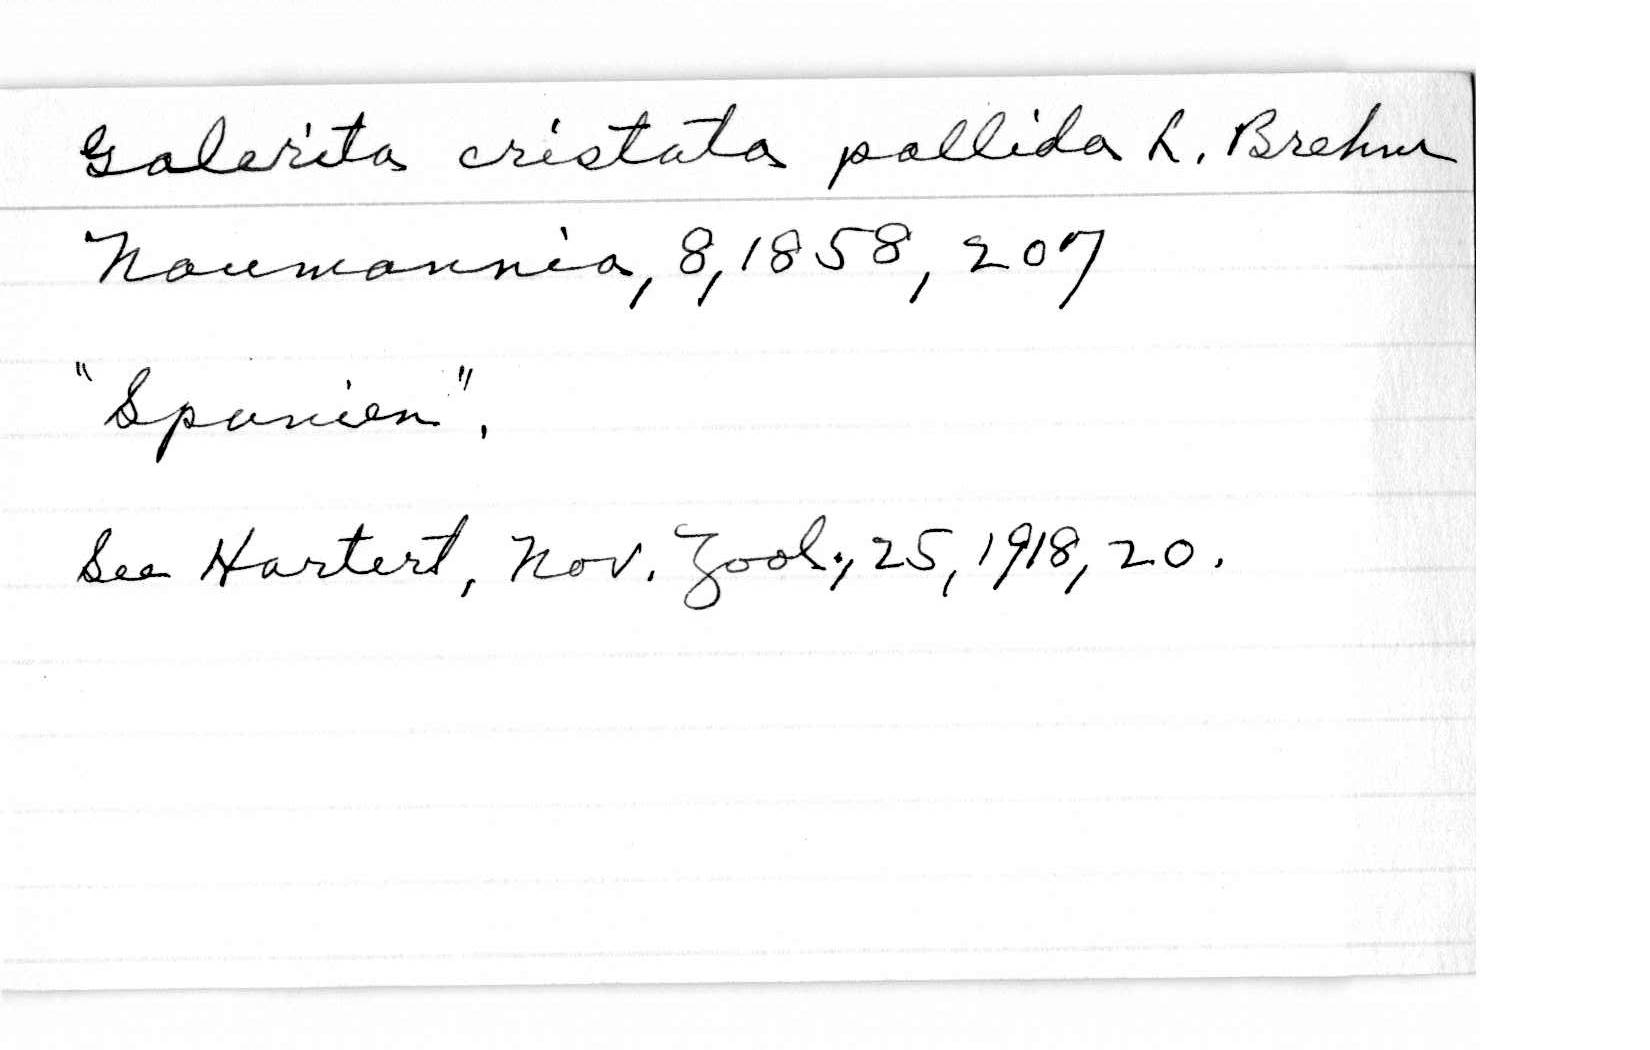 Galerita cristata pallida L. Brehm
Naumannia, 8, 1858, 207
"Spanien".
See Hartert, Nov. Zool., 25, 1918, 20.